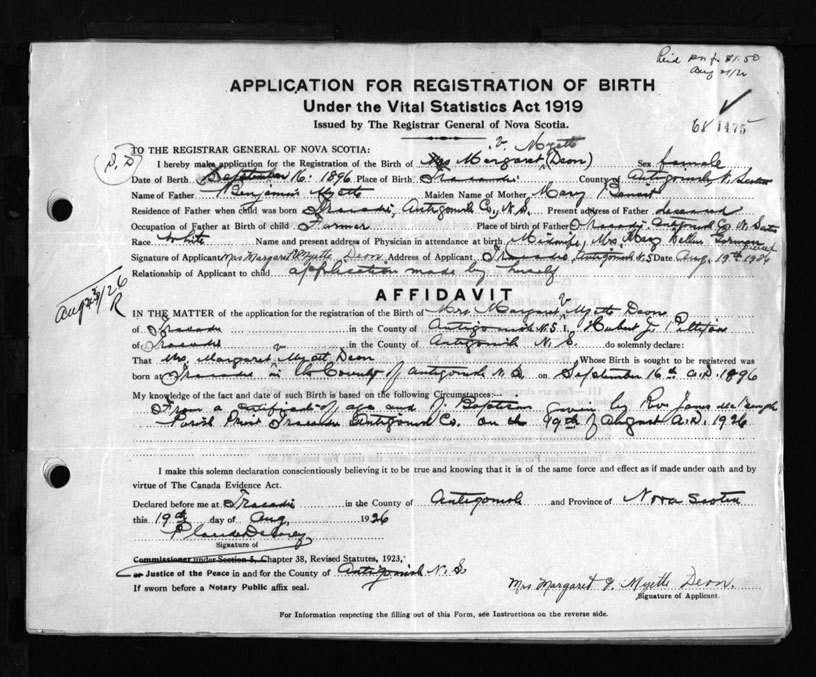 Aug 21/26
APPLICATION FOR REGISTRATION OF BIRTH
Under the Vital Statistics Act 1919
Issued by The Registrar General of Nova Scotia.
1475
TO THE REGISTRAR GENERAL OF NOVA SCOTIA:
V. Myette
I hereby make application for the Registration of the Birth of Mrs Margaret (Deon) Sex female
Date of Birth September 16. 1896 Place of Birth Tracadie County of Antigonish, N. Scotia
Name of Father Benjamin Myette Maiden Name of Mother Mary Benoit
Residence of Father when child was born Tracadie, Antigonish Co., N.S. Present address of Father deceased
Occupation of Father at Birth of child Farmer Place of birth of Father Tracadie, Antigonish Co. N. Scotia
Race White Name and present address of Physician in attendance at birth Midwife, Mrs. Mary
Signature of Applicant Mrs Margaret V Myette Deon. Address of Applicant, Tracadie, Antigonish N.S Date Aug. 19th 1926
Relationship of Applicant to child application made by herself
AFFIDAVIT
IN THE MATTER of the application for the registration of the Birth of Mrs. Margaret V Myette Deon
of Tracadie in the County of Antigonish N.S. I, Hubert J.
of Tracadie in the County of Antigonish N. S. do solemnly declare:
That Mrs. Margaret V Myette Deon Whose Birth is sought to be registered was
born at Tracadie in the County of Antigonish N.S. on September 16th A.D. 1896
My knowledge of the fact and date of such Birth is based on the following Circumstances:
From a certificate of age and of Baptism given by Rev James
Parish Priest Tracadie Antigonish Co. on the 19th of August A.D. 1926
I make this solemn declaration conscientiously believing it to be true and knowing that it is of the same force and effect as if made under oath and by
virtue of The Canada Evidence Act.
Declared before me at Tracadie in the County of Antigonish and Province of Nova Scotia
this 19th day of Aug. 1926
Signature of
Commissioner under Section 5, Chapter 38, Revised Statutes, 1923,
or Justice of the Peace in and for the County of Antigonish N. S.
If sworn before a Notary Public affix seal.
Mrs Margaret V. Myette Deon.
Signature of Applicant.
For Information respecting the filling out of this Form, see Instructions on the reverse side.